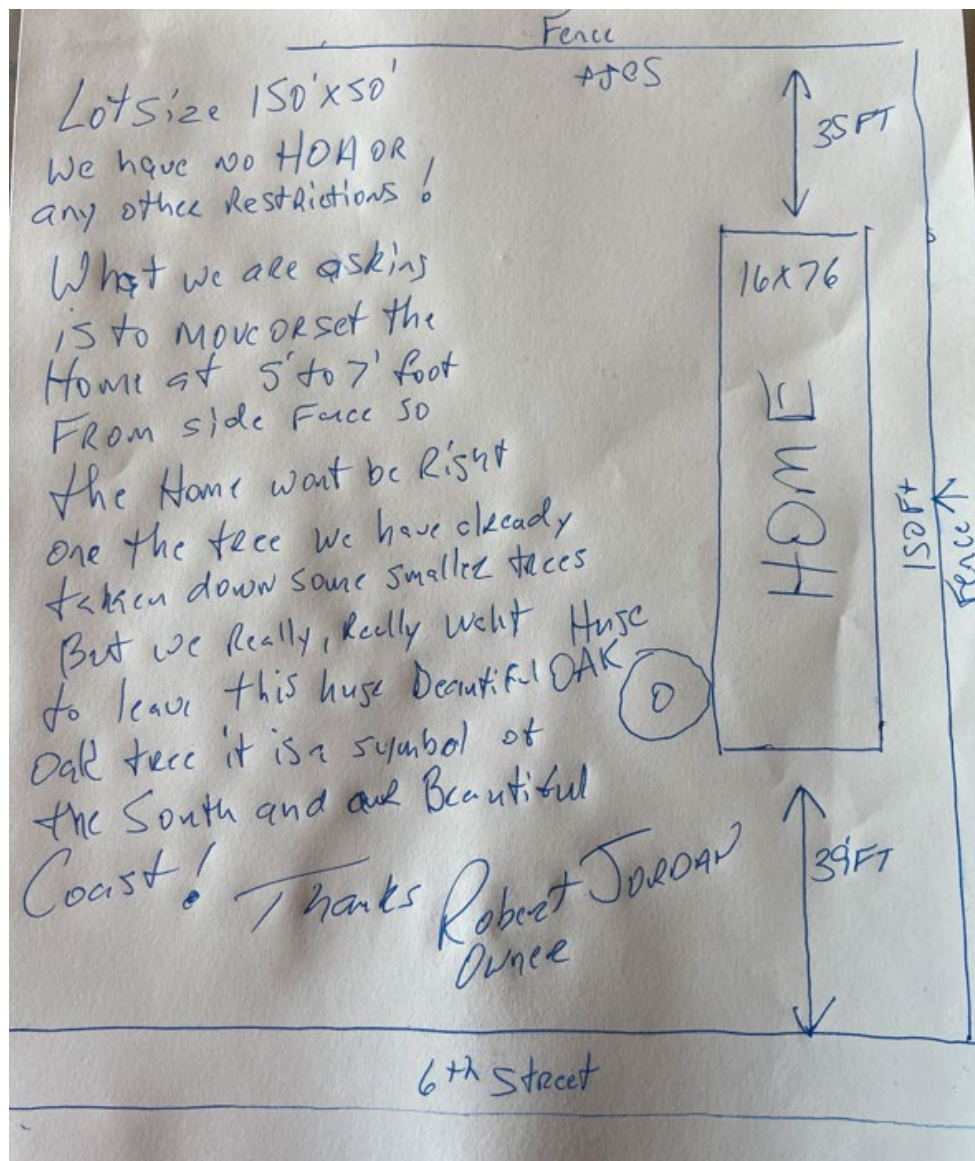 Fence
Lot Size 150'x50'
We have NO HOA OR
any other Restrictions!
What we are asking
is to move or set the
Home at 5' to 7' foot
From side Fence so
the Home wont be Right
one the tree we have already
taken down some smaller trees
But we Really, Really want
to leave this huge Beautiful
Oak tree it is a symbol of
the South and our Beautiful
Coast! Thanks Robert JORDAN
Owner
35 FT
16x76
HOME
150 Ft
Fence
Huge
OAK
O
39 FT
6th Street